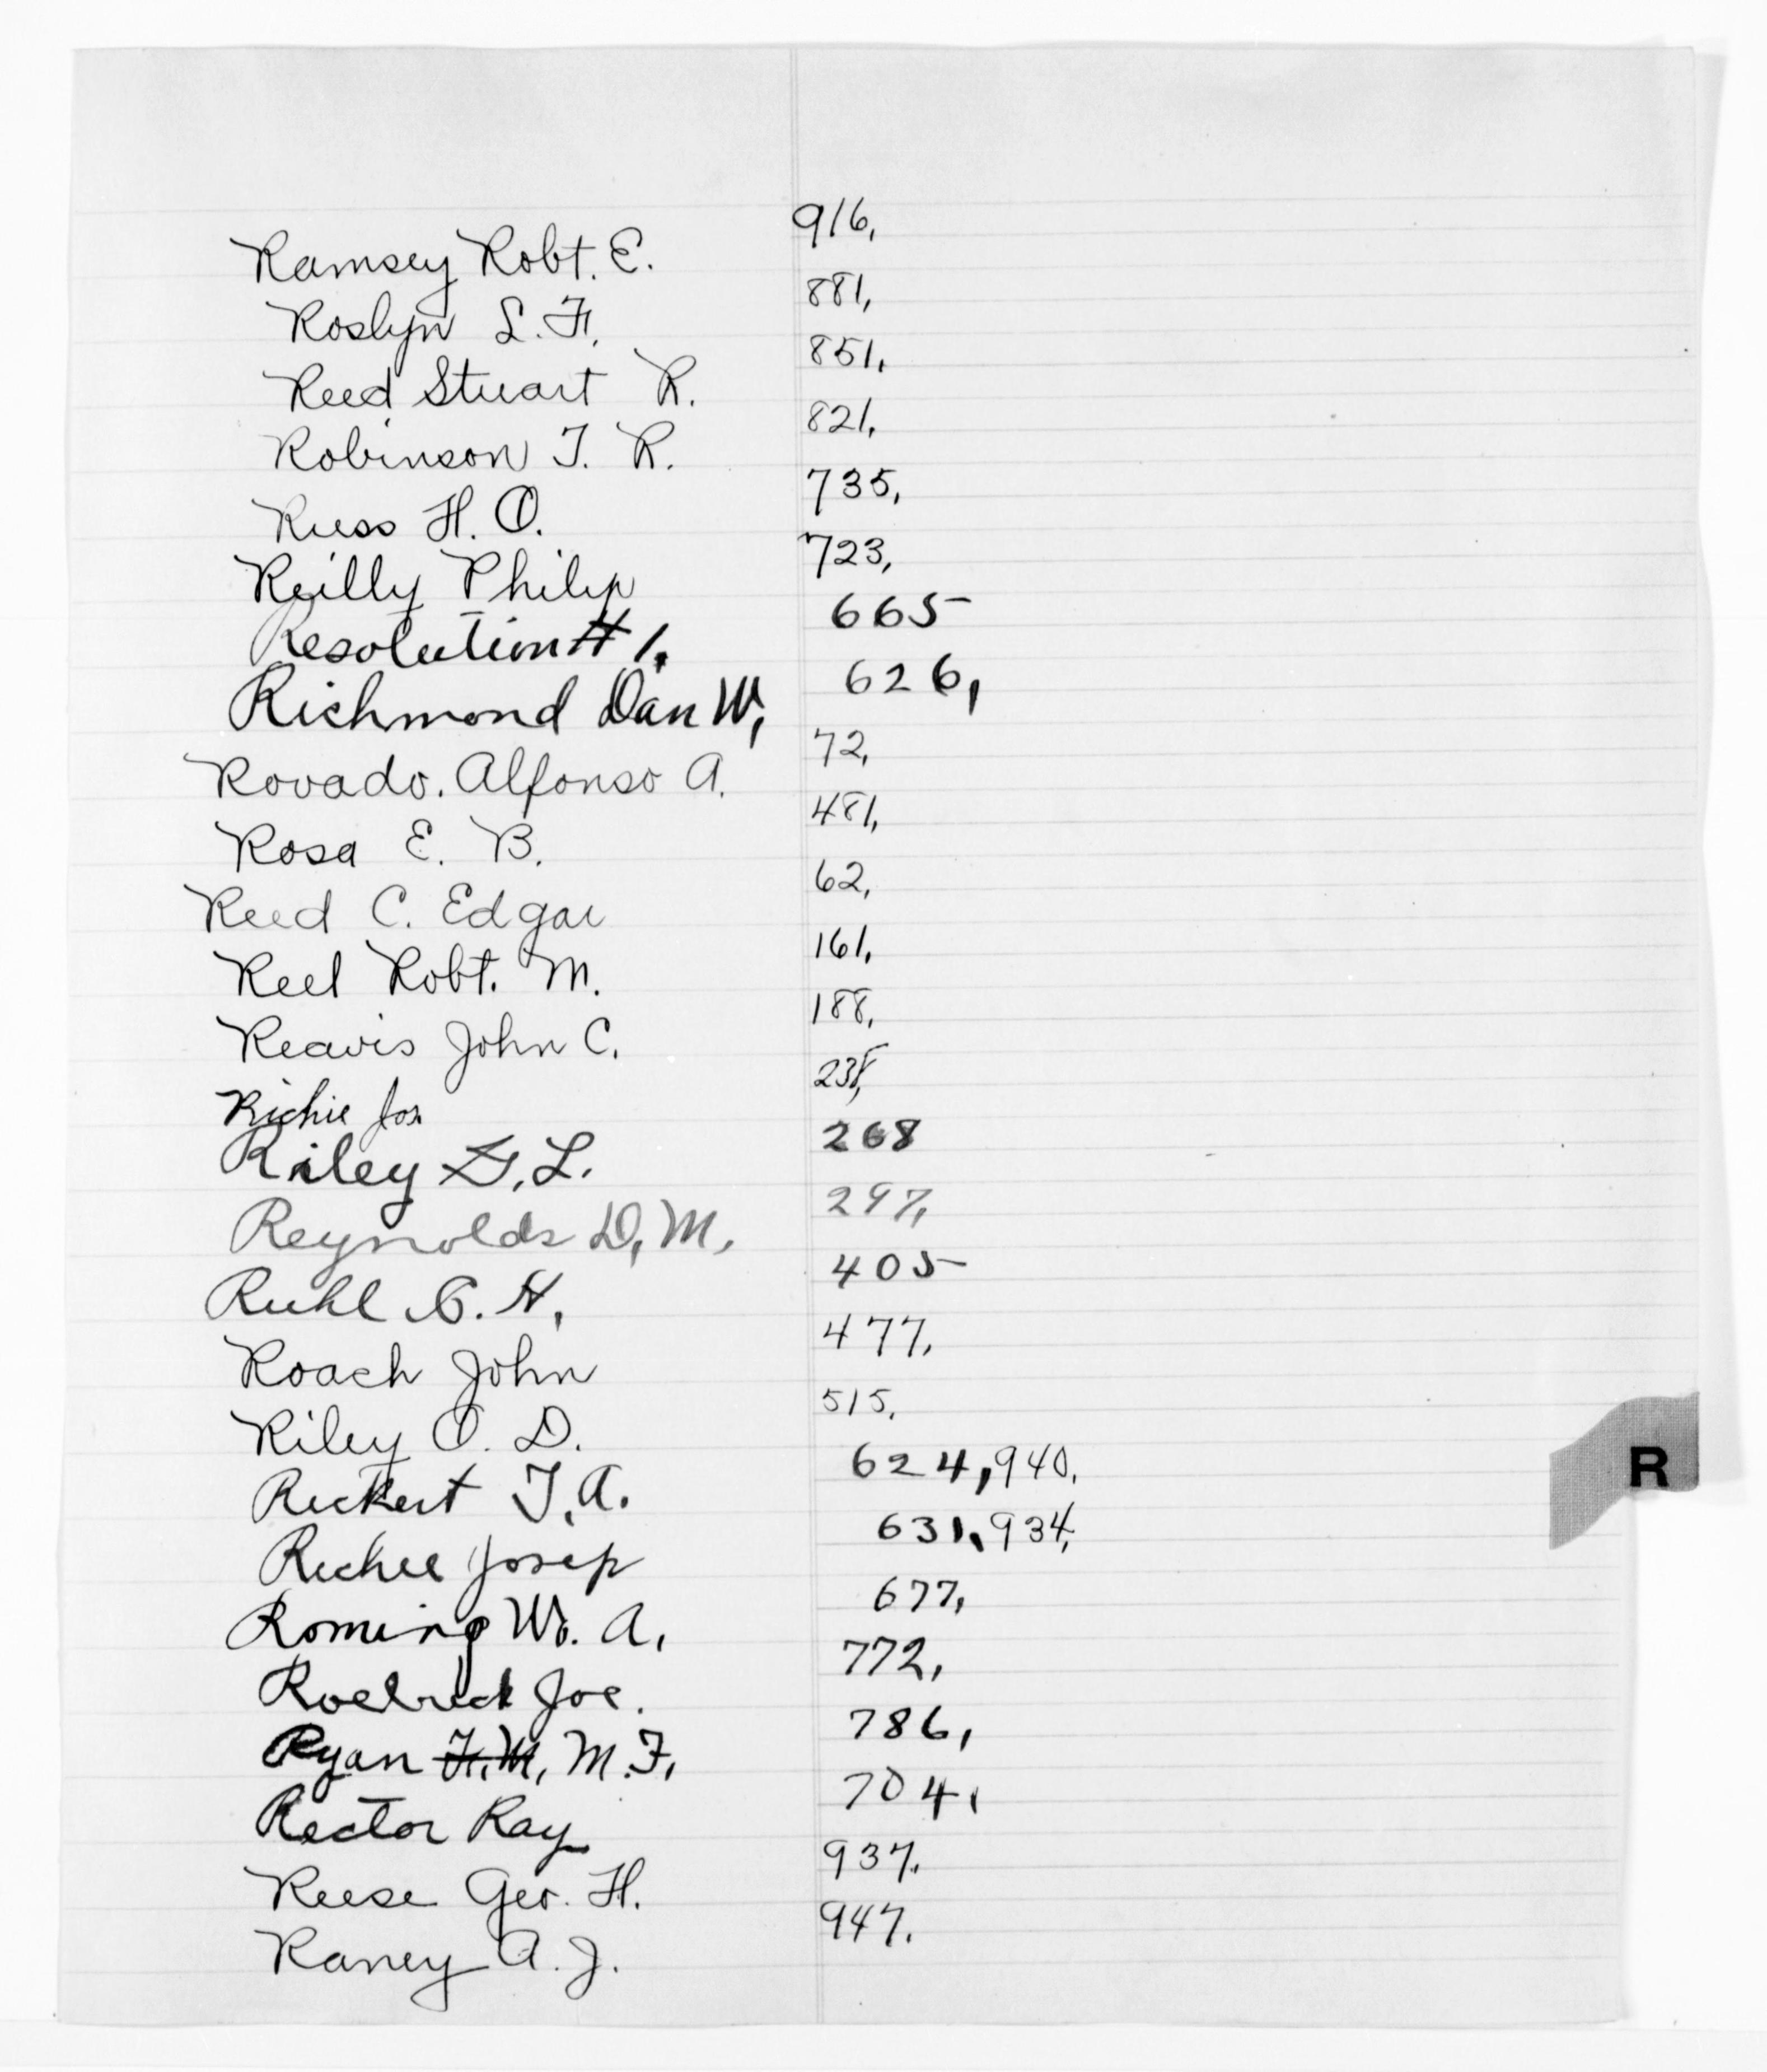 Ramsey Robt. E. 916,
Roslyn L. F. 881,
Reed Stuart R. 851,
Robinson T. R. 821,
Russ H. O. 735,
Reilly Philip 723,
Resolution # 1. 665
Richmond Dan W, 626,
Rovado. Alfonso A. 72,
Rosa E. B. 481,
Reed C. Edgar 62,
Reel Robt. M. 161,
Reavis John C. 188,
Richie Jos.
Riley G. L. 268
Reynolds D, M, 297,
Ruhl C. H, 405
Roach John 477,
Riley O. D. 515,
Rickert T. A. 624, 940,
Richee Josep 631, 934,
Roming Wm. A, 677,
Joe. 772,
Ryan F. M, M. F, 786,
Rector Ray 704,
Reese Geo. H. 937,
Raney A. J. 947.
R